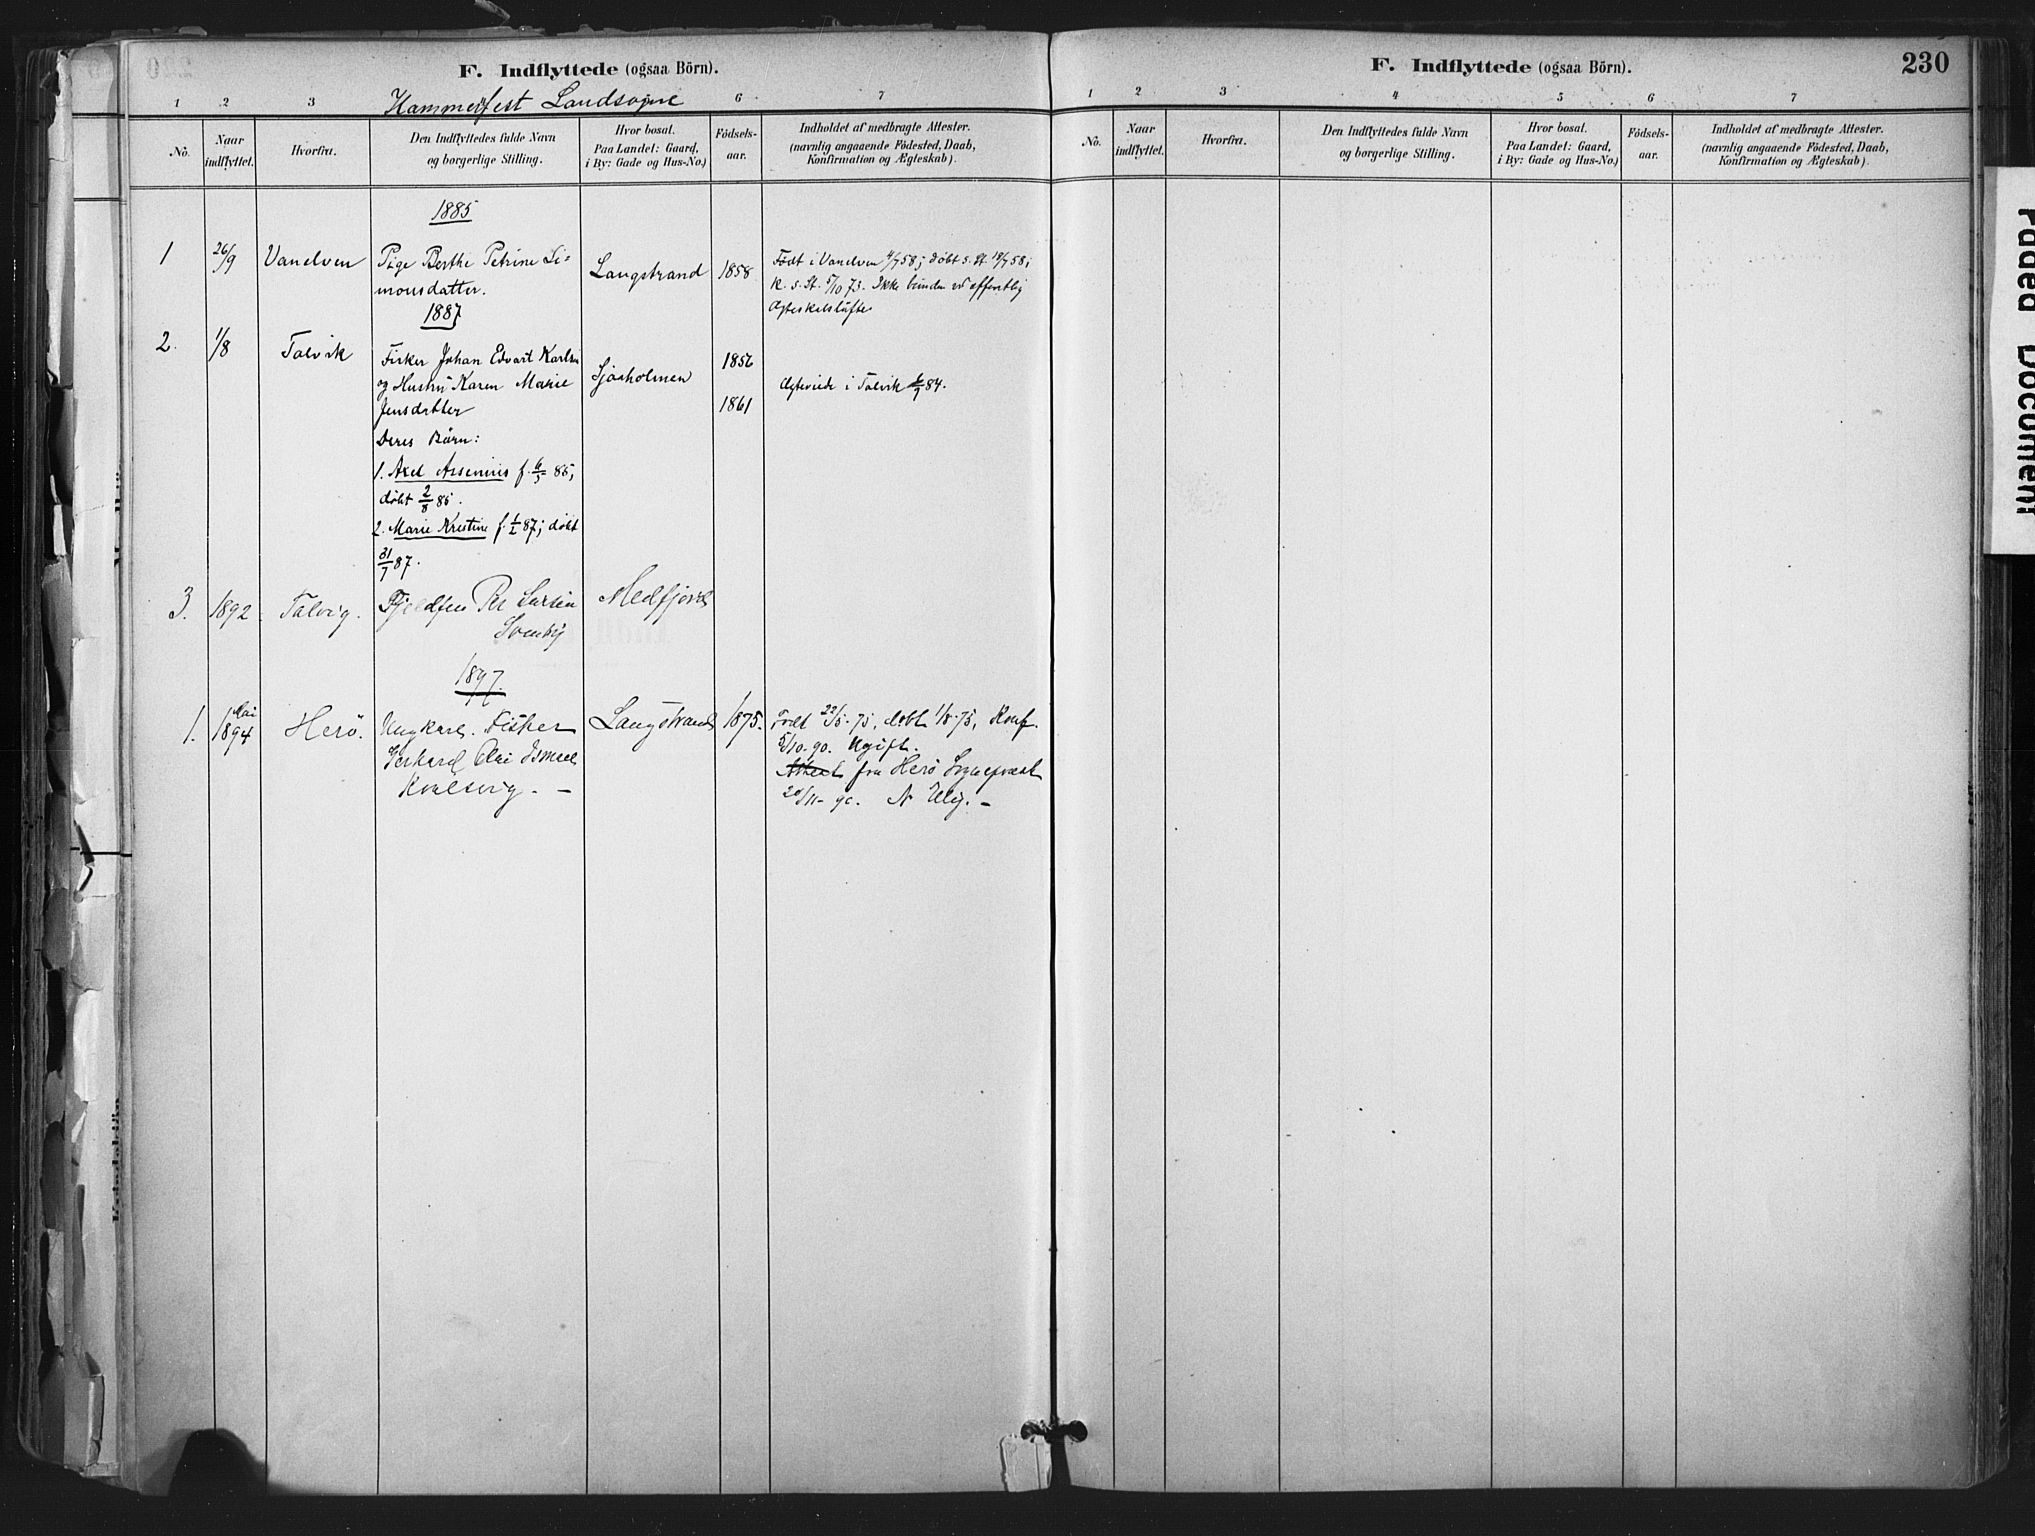 F. Indflyttede (ogsaa Börn).
Hammerfest Landsogne
1 2 3 6 7
No.
Naar indflyttet.
Hvorfra.
Den Indflyttedes fulde Navn
og borgerlige Stilling.
Hvor bosat.
Paa Landet: Gaard,
i By: Gade og Hus-No.)
Födsels-
aar.
Indholdet af medbragte Attester.
(navnlig angaaende Födested, Daab,
Konfirmation og Ægteskab).
1885
1 26/9 Vanelven Pige Berthe Petrine Si-
monsdatter.
Langstrand 1858
Født i Vanelven 4/7 58; døbt s. St. 18/7 58;
k. s. St. 5/10 73. Ikke bunden ved offentlig
Ægteskabsløfte
1887
2. 1/8 Talvik Fisker Johan Edvart Karlsen
og Hustru Karen Marie
Jensdatter
Sjåholmen
1856
1861
Ægteviede i Talvik 84.
Deres Børn:
1. Axel Arsenius f. 6/5 85;
døbt 2/8 85.
2. Marie Kristine f. 87; døbt
31/7 87.
3. 1892. Talvig. Fjeldfin Per Larsen
Somby
Medfjord
1897.
1. Mai 1894 Herö. Ungkarl. Fisker
Gerhard Olai Ismael
Kvalsvig. –
Langstrand 1875.
Født 22/5-75, døbt 1/8-75, Konf.
5/10-90. Ugift.
Attest fra Herö Sognepræst
20/11-90. N Ulig. –
F. Indflyttede (ogsaa Börn).
230
1 2 3 4 5 6 7
No.
Naar
indflyttet.
Hvorfra.
Den Indflyttedes fulde Navn
og borgerlige Stilling.
Hvor bosat.
Paa Landet: Gaard,
i By: Gade og Hus-No.)
Födsels-
aar.
Indholdet af medbragte Attester.
(navnlig angaaende Födested, Daab,
Konfirmation og Ægteskab).
Faded Document